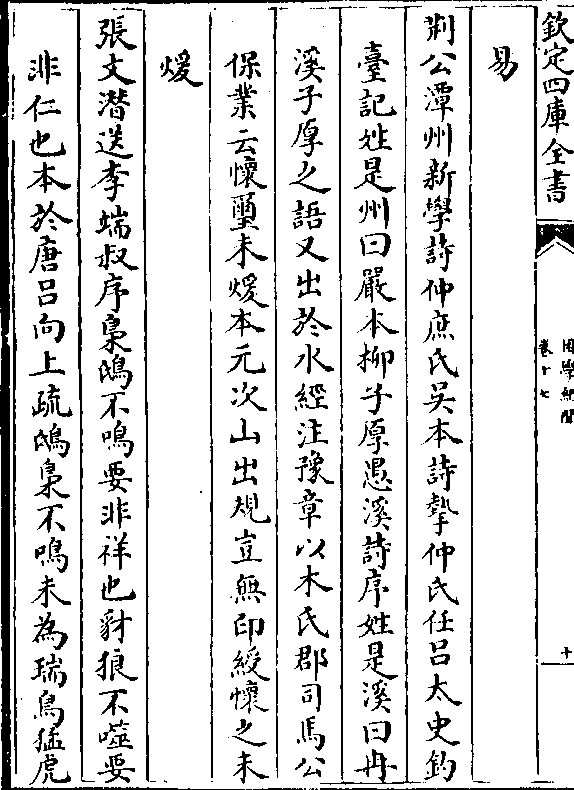 欽定四庫全書
困學紀聞
卷十七
十
易
荆公潭州新學詩仲庶氏吳本詩摯仲氏任吕太史釣
臺記姓是州曰嚴本柳子厚愚溪詩序姓是溪曰冉
溪子厚之語又出於水經注豫章以木氏郡司馬公
保業云懷璽未煖本元次山出規豈無印綬懷之未
煖
張文潛送李端叔序梟鴟不鳴要非祥也豺狼不噬要
非仁也本於唐吕向上疏鴟梟不鳴未為瑞鳥猛虎